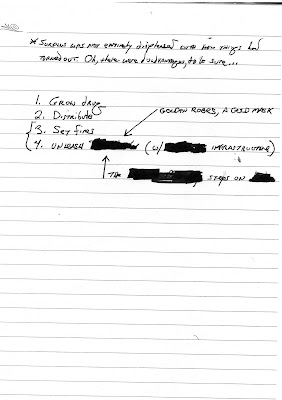 * Surplus was not entirely displeased with how things had
turned out. Oh, there were disadvantages, to be sure...
1. Grow drug
2. Distribute
3. Set fires
GOLDEN ROBES, A GOLD MASK
4. UNLEASH (w/ INFRASTRUCTURE)
THE STEPS ON